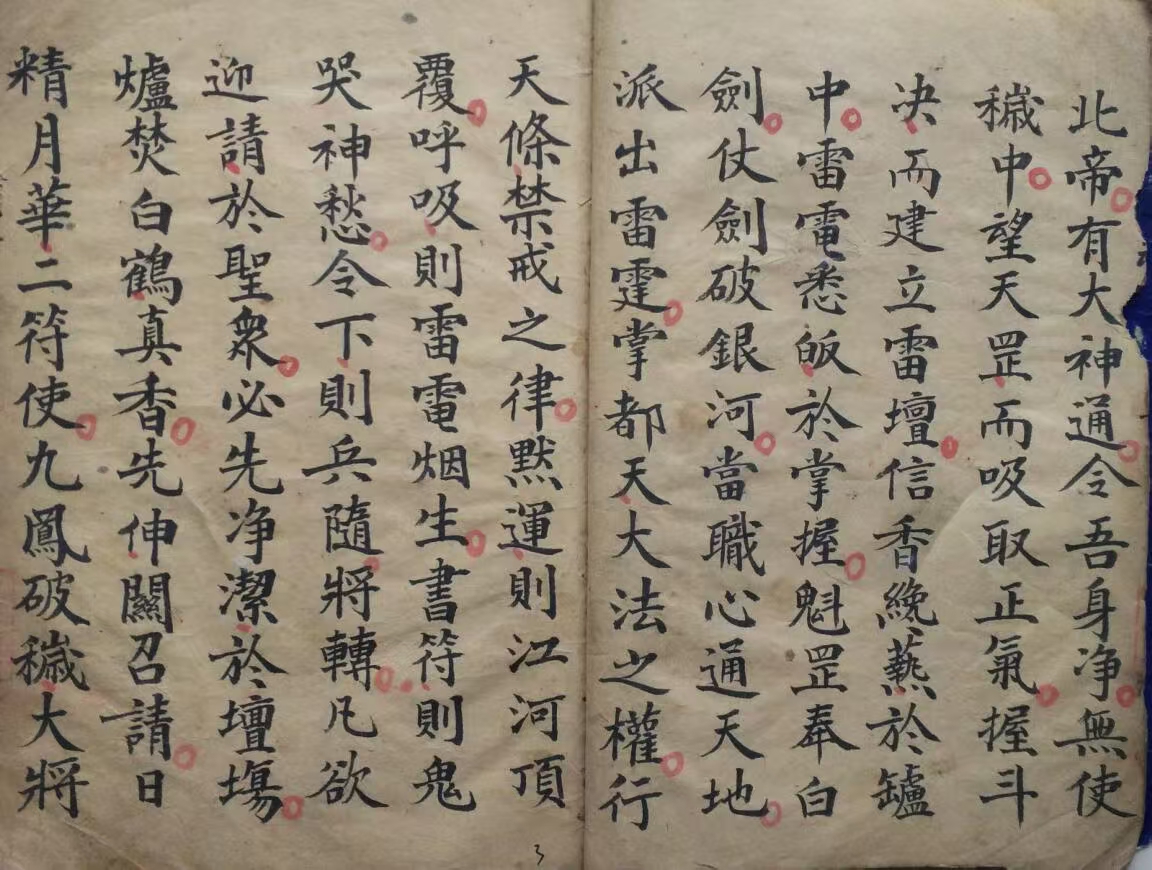 北帝有大神通令吾身净無使
穢中望天罡而吸取正氣握斗
决而建立雷壇信香纔爇於罏
中雷電悉皈於掌握魁罡奉白
劍仗劍破銀河當職心通天地
派出雷霆掌都天大法之權行
天條禁戒之律默運則江河頂
覆呼吸則雷電烟生書符則鬼
哭神愁令下則兵隨將轉凡欲
迎請於聖衆必先净潔於壇塲
爐焚白鶴真香先伸關召請日
精月華二符使九鳳破穢大將
3